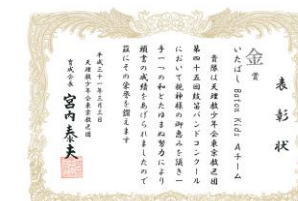 表彰状
金賞
いたばし Baton Kids Aチーム
貴隊は天理教少年会東京教区団
第四十五回鼓笛バンドコンクール
において親神様の御恵みを頂き一
手一つの和とたゆまぬ努力により
頭書の成績をあげられましたので
茲にその栄誉を讃えます
平成三十一年三月三日
天理教少年会東京教区団
育成会長 宮内泰夫